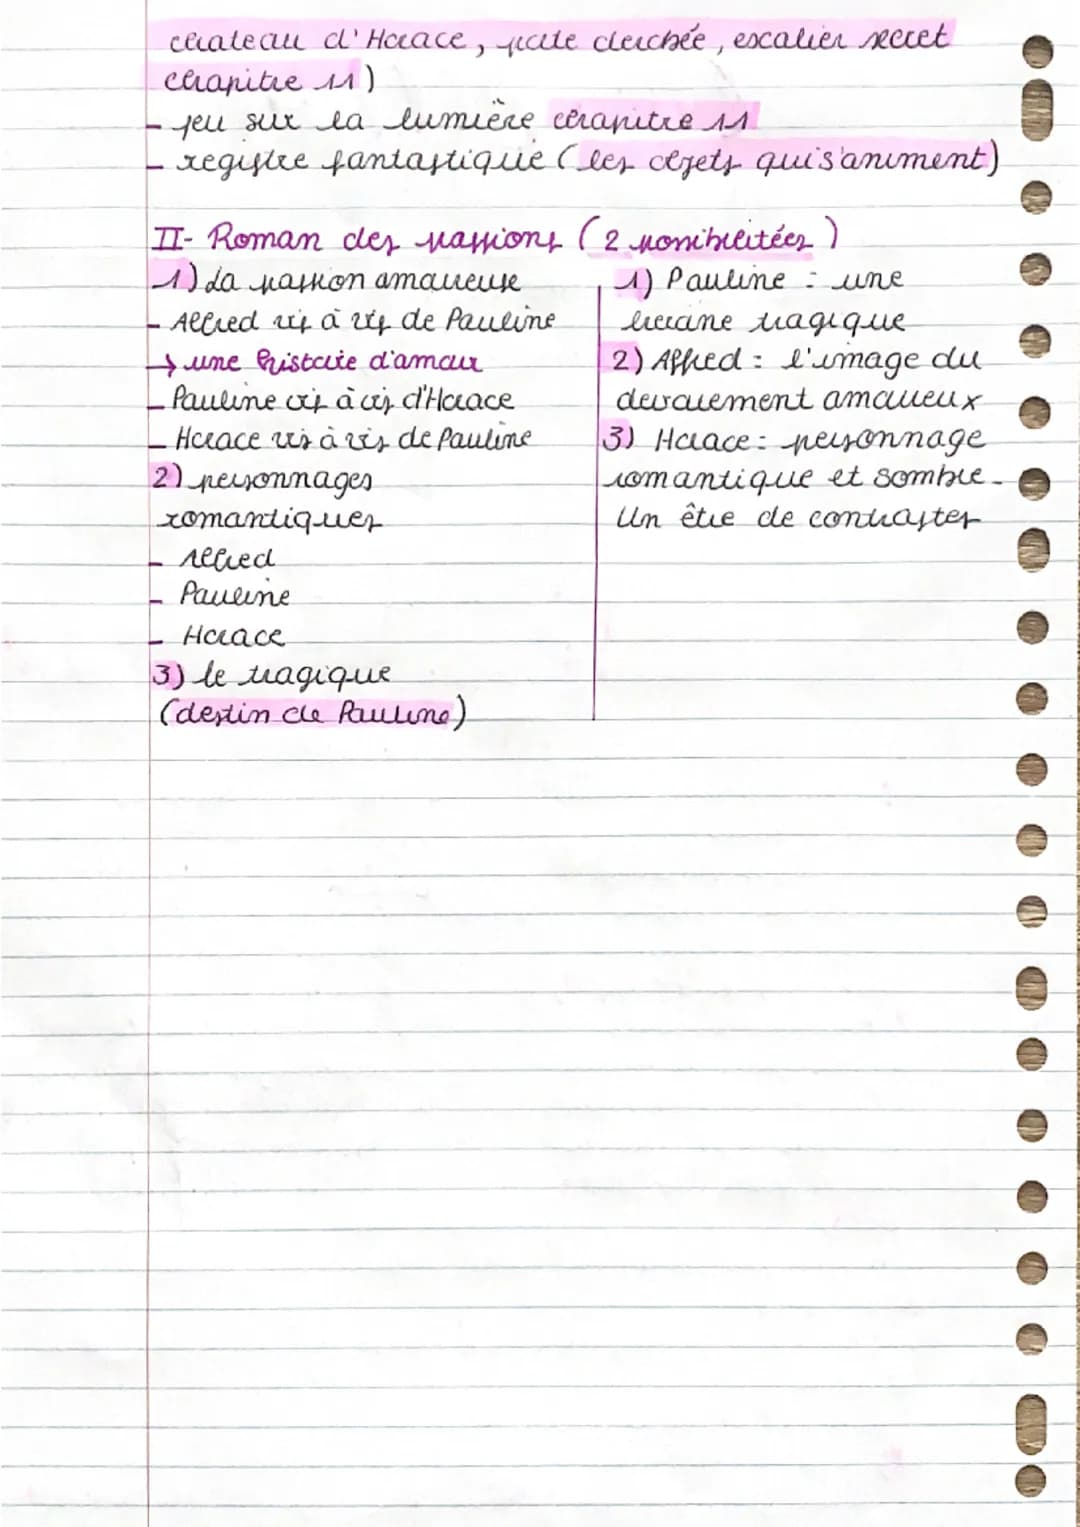 château d'Horace, porte cherchée, escalier secret
chapitre 11)
- jeu sur la lumière chapitre 11
- registre fantastique (les objets qui s'animent)
II- Roman des passions (2 possibilitées)
1) La passion amoureuse
- Alfred vis à vis de Pauline
→ une histoire d'amour
- Pauline vis à vis d'Horace
- Horace vis à vis de Pauline
2) personnages
romantiques
- Alfred
- Pauline
- Horace
3) le tragique
(destin de Pauline)
1) Pauline : une
héroïne tragique
2) Alfred : l'image du
dévouement amoureux
3) Horace : personnage
romantique et sombre.
Un être de contrastes